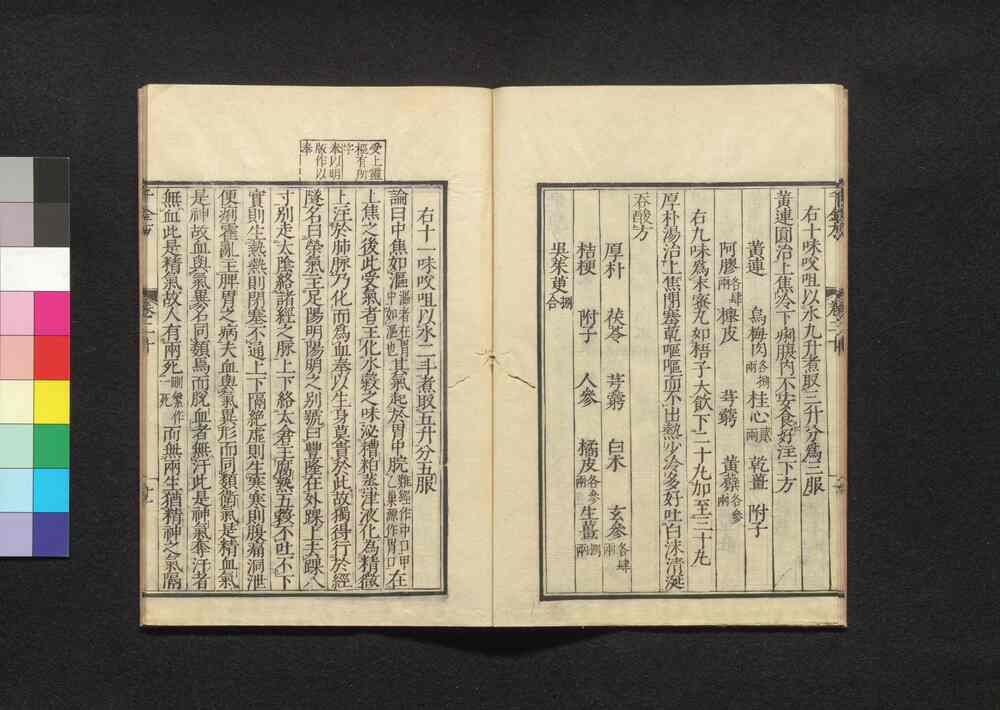 右十味㕮咀以水九升煮取三升分爲三服
黃連圓治上焦冷下痢腹内不安食好注下方
黃連 烏梅肉各捌兩 桂心貳兩 乾薑 附子
阿膠各肆兩 櫸皮 芎藭 黃蘗各參兩
右九味爲末蜜丸如梧子大飲下二十丸加至三十丸
厚朴湯治上焦閉塞乾嘔嘔而不出熱少冷多好吐白沫清涎
吞酸方
厚朴 茯苓 芎藭 白朮 玄參各肆兩
桔梗 附子 人參 橘皮各參兩 生薑捌兩
吳茱萸捌合
右十一味㕮咀以水二斗煮取五升分五服
論曰中焦如漚漚者在胃中如漚也其氣起於胃中脘難經作中口甲乙巢源作胃口在
上焦之後此受氣者主化水穀之味泌糟粕蒸津液化為精微
上注於肺脉乃化而爲血奉以生身莫貴於此故獨得行於經
隧名曰榮氣主足陽明陽明之别號曰豐隆在外踝上去踝八
寸别走太陰絡諸經之脉上下絡太倉主腐熟五穀不吐不下
實則生熱熱則閉塞不通上下隔絶虚則生寒寒則腹痛洞泄
便痢霍亂主脾胃之病夫血與氣異形而同類衛氣是精血氣
是神故血與氣異名同類焉而脫血者無汗此是神氣奪汗者
無血此是精氣故人有兩死一刪繁作一死而無兩生猶精神之氣隔
受上靈
樞有所
字
本以明
版作以
奉